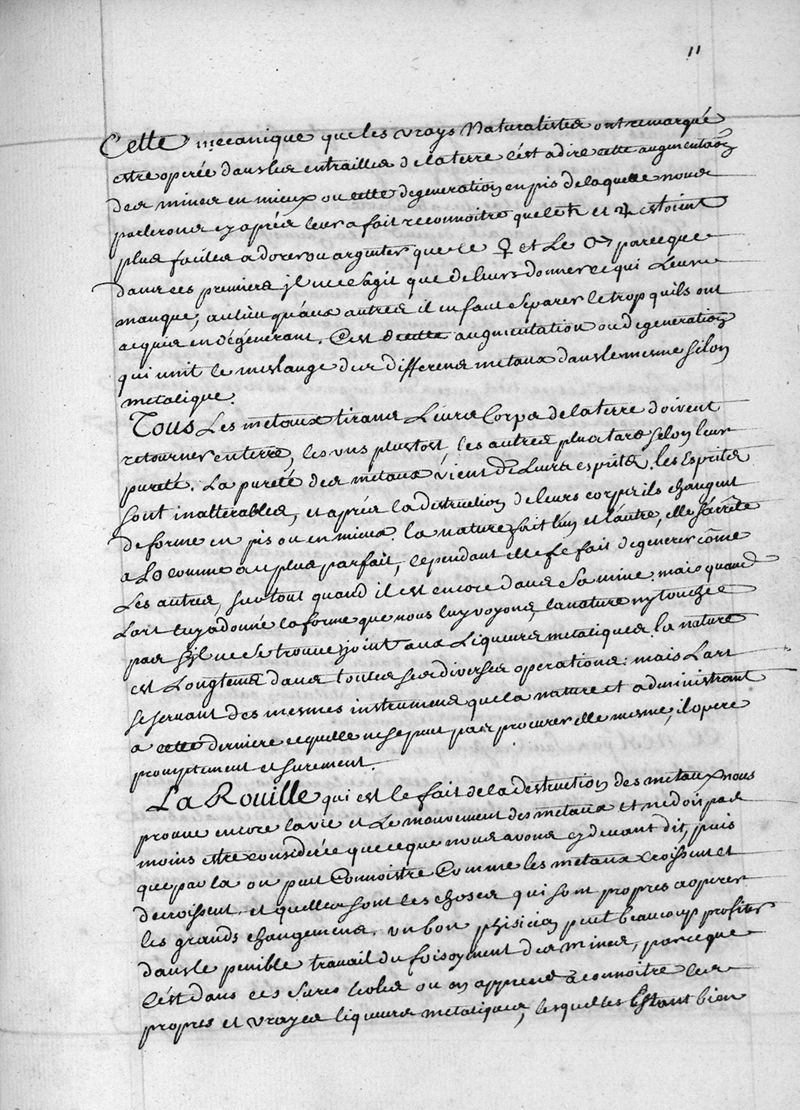 11
Cette mecanique que les vrays Naturalistes ont remarqué
estre operée dans les entrailles de la terre c'est a dire cette augmentaõn
des mines en mieux ou cette degeneration en pis de laquelle nous
parlerons cy après leur a fait reconnoitre que le ♄ et ♃ estoient
plus faciles a dorer ou argenter que le ♀ et Le ♂ parceque
dans ces premiers jl ne s'agit que de leurs donner ce qui Leur
manque, au lieu qu'aux autres il en faut separer le trop qu'ils ont
acquis en dégénerant. C'est cette augmentation ou degeneration
qui unit le meslange des differens metaux dans le mesme filon
metalique.
Tous Les metaux tirans Leurs Corps de la terre doivent
retourner en terre, les uns plustost les autres plus tard selon leur
pureté. La pureté des metaux vient de Leurs esprits. les Esprits
sont inalterables, et après la destruction de leurs corps ils changent
de forme en pis ou en mieux. la nature fait l'un et l'autre, elle s'arrête
a L'☉ comme au plus parfait, cependant elle le fait degenerer cõme
Les autres, surtout quand il est encore dans sa mine. mais quand
L'art luy a donné la forme que nous luy voyons, la nature n'y touche
pas s'jl ne se trouve joint aux Liqueurs metaliques. la nature
est Longtems dans toutes ses diverses operations: mais L'art
se servant des mesmes instrumens que la nature et administrant
a cette derniere ce quelle ne se peut pas procurer elle mesme, il opere
promptement et surement.
La Rouille qui est le fait de la destruction des metaux nous
prouve encore la vie et Le mouvement des metaux et ne doit pas
moins etre considerée que ce que nous avons cy devant dit, puis
que par la on peut Connoistre Comme les metaux croissent et
decroissent, et quelles sont les choses qui sont propres a operer
les grands changemens. un bon phisicien peut beaucoup profiter
dans le penible travail du foisoyment des mines, parceque
C'est dans ces sures Ecoles ou on apprend a connoitre les
propres et vrayes liqueurs metaliques, lesquelles Estant bien